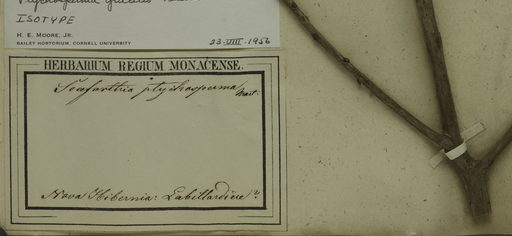 Ptychosperma gracilis
ISOTYPE
H. E. MOORE, JR.
BAILEY HORTORIUM, CORNELL UNIVERSITY
23.VIII.1956
HERBARIUM REGIUM MONACENSE.
Seaforthia ptychosperma Mart:
Nova Hibernia: Labillardière